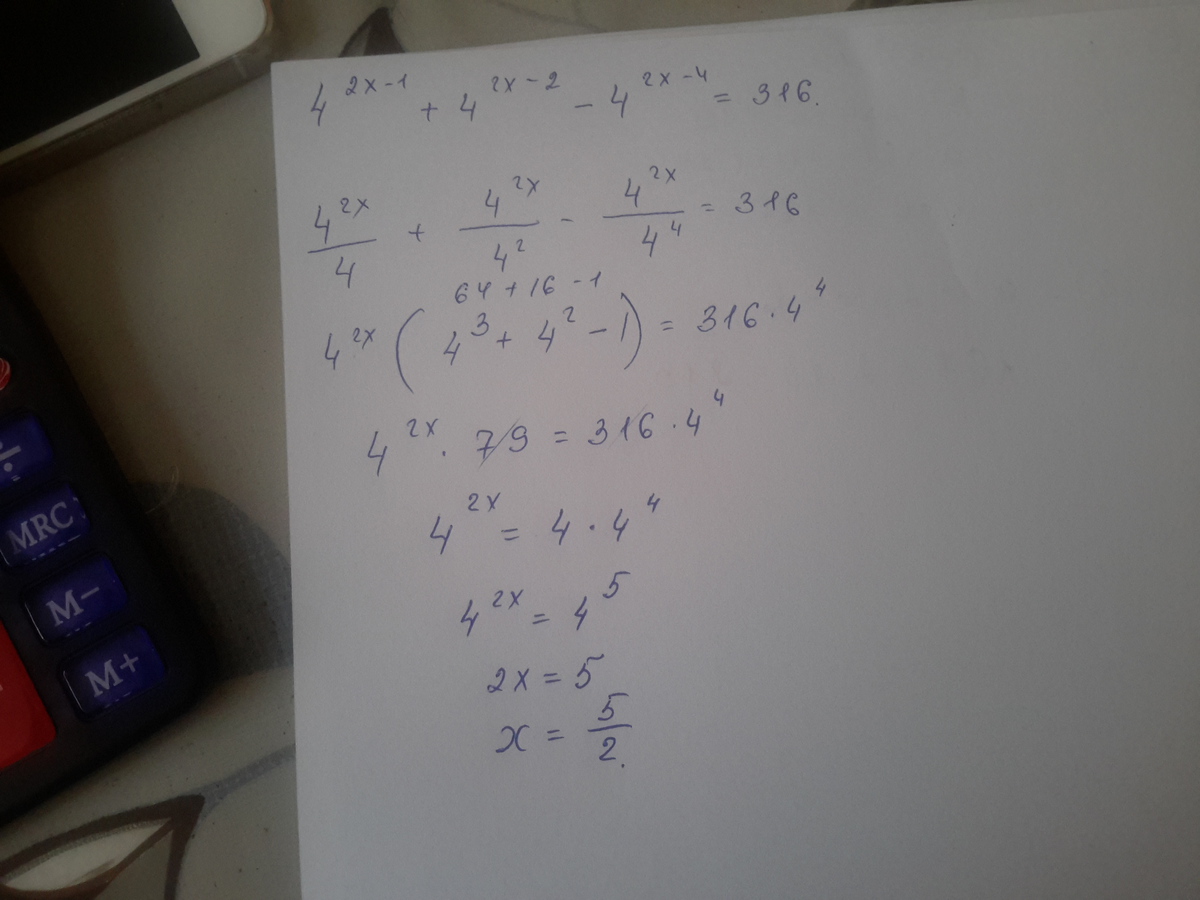 4^{2x-1} + 4^{2x-2} - 4^{2x-4} = 316.
\frac{4^{2x}}{4} + \frac{4^{2x}}{4^2} - \frac{4^{2x}}{4^4} = 316
64 + 16 - 1
4^{2x} (4^3 + 4^2 - 1) = 316 \cdot 4^4
4^{2x} \cdot 79 = 316 \cdot 4^4
4^{2x} = 4 \cdot 4^4
4^{2x} = 4^5
2x = 5
x = \frac{5}{2}.
÷
MRC
M−
M+